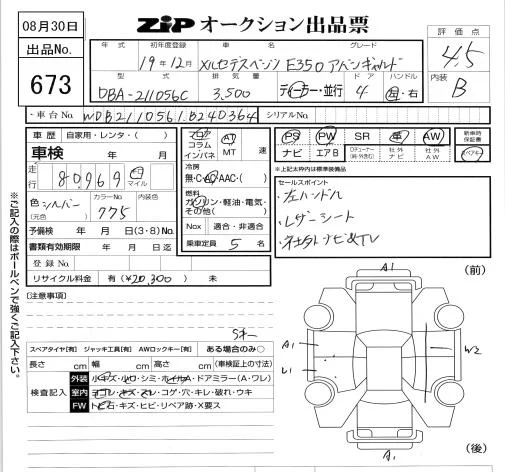 08月30日
ZiP オークション出品票
出品No.
673
年式 初年度登録 車名 グレード
19年12月 メルセデスベンツ E350 アバンギャルド
型式 排気量 ドア ハンドル
DBA-211056C 3,500 ディーラー・並行 4 左・右
評価点
4.5
内装
B
・車台No. WDB2110561B240364 シリアルNo.
車歴 自家用・レンタ・( )
車検 年 月
走行 80,969 マイル
色 シルバー (元色) カラーNo. 775 内装色
予備検 年 月 日(3・8)No.
書類有効期限 年 月 日迄
登録No.
リサイクル料金 有(¥20,300) 未
フロア コラム インパネ AT MT 速
冷房
無・C・AAC・( )
燃料
ガソリン・軽油・電気・その他( )
Nox 適合・非適合
乗車定員 5 名
PS PW SR 革 AW
ナビ エアB 社外ナビ 社外AW
新車時保証書
スペアキー
※上記太枠内は標準装備品
セールスポイント
・左ハンドル
・レザーシート
・社外ナビ&TV
※ご記入の際はボールペンで強くご記入下さい。
【注意事項】
スペアタイヤ【有】 ジャッキ工具【有】 AWロックキー【有】 ある場合のみ○
長さ cm 幅 cm 高さ cm (車検証上の寸法)
検査記入
外装 小キズ・小ワ・シミ・ホイルA・ドアミラー(A・ワレ)
室内 ヨゴレ・キズ・スレ・コゲ・穴・キレ・破れ・ウキ
FW トビ石・キズ・ヒビ・リペア跡・X要ス
A1 (前)
A1
U1
W2
A1 (後)